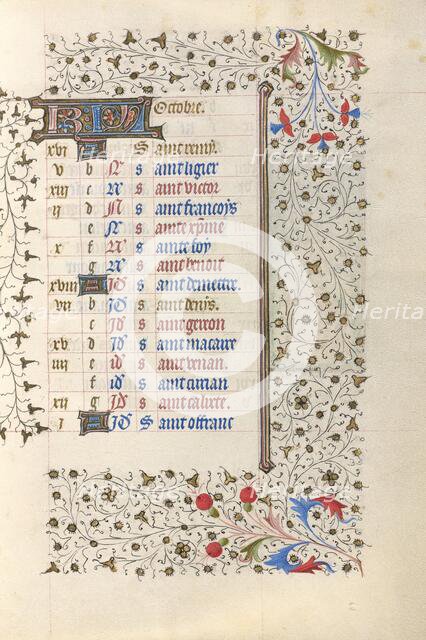 KL Octobre.
xvi A S aint remy.
v b N s aint ligier
xiii c N s aint victor
ii d N s aint francoys
e N s ainte xpine
x f N s ainte foy
g N s aint benoit
xviii A Id s aint demettre.
vii b Id s aint denys.
c Id s aint gereon
xv d Id s aint macaire
iiii e id s aint venan.
f id s aint cirian
xii g Id s aint calixte.
i A Id S aint offranc
Heritage